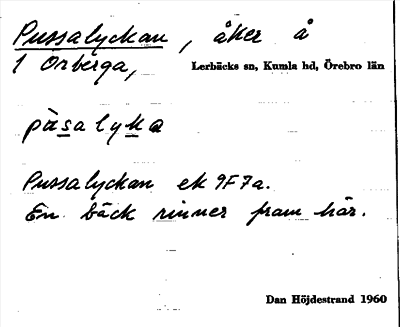 Pussalyckan, åker å
1 Örberga, Lerbäcks sn, Kumla hd, Örebro län
pὰsalyka
Pussalyckan ek 9F7a.
En bäck rinner fram här.
Dan Höjdestrand 1960